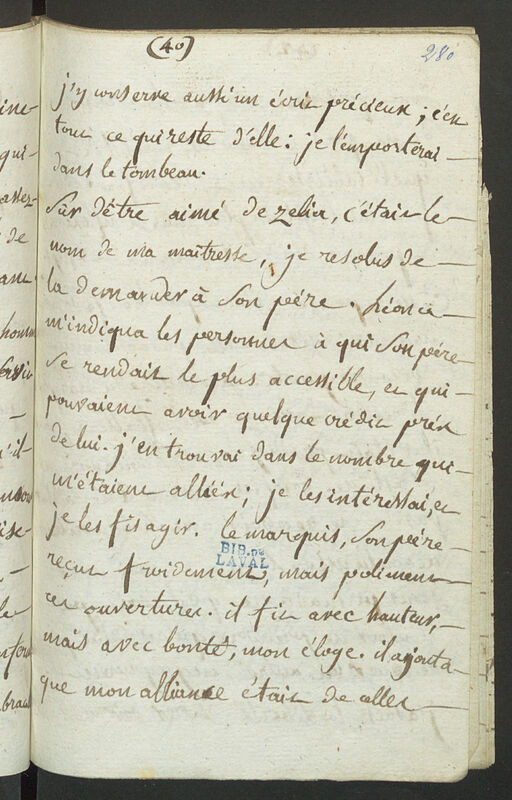 (40)
280
j'y conserve aussi un écrit précieux; c'est
tout ce qui reste d'elle: je l'emporterai
dans le tombeau.
Sûr d'être aimé de zelia, c'était le
nom de ma maîtresse, je resolus de
la demander à son pére. Léonce
m'indiqua les personnes à qui son pére
se rendait le plus accessible, et qui
pouvaient avoir quelque crédit près
de lui. j'en trouvai dans le nombre qui
m'étaient alliés; je les intéressai, et
je les fis agir. le marquis, son pére
reçut froidement, mais poliment
ces ouvertures. il fit avec hauteur,
mais avec bonté, mon éloge. il ajouta
que mon alliance était de celles
BIB. DE
LAVAL